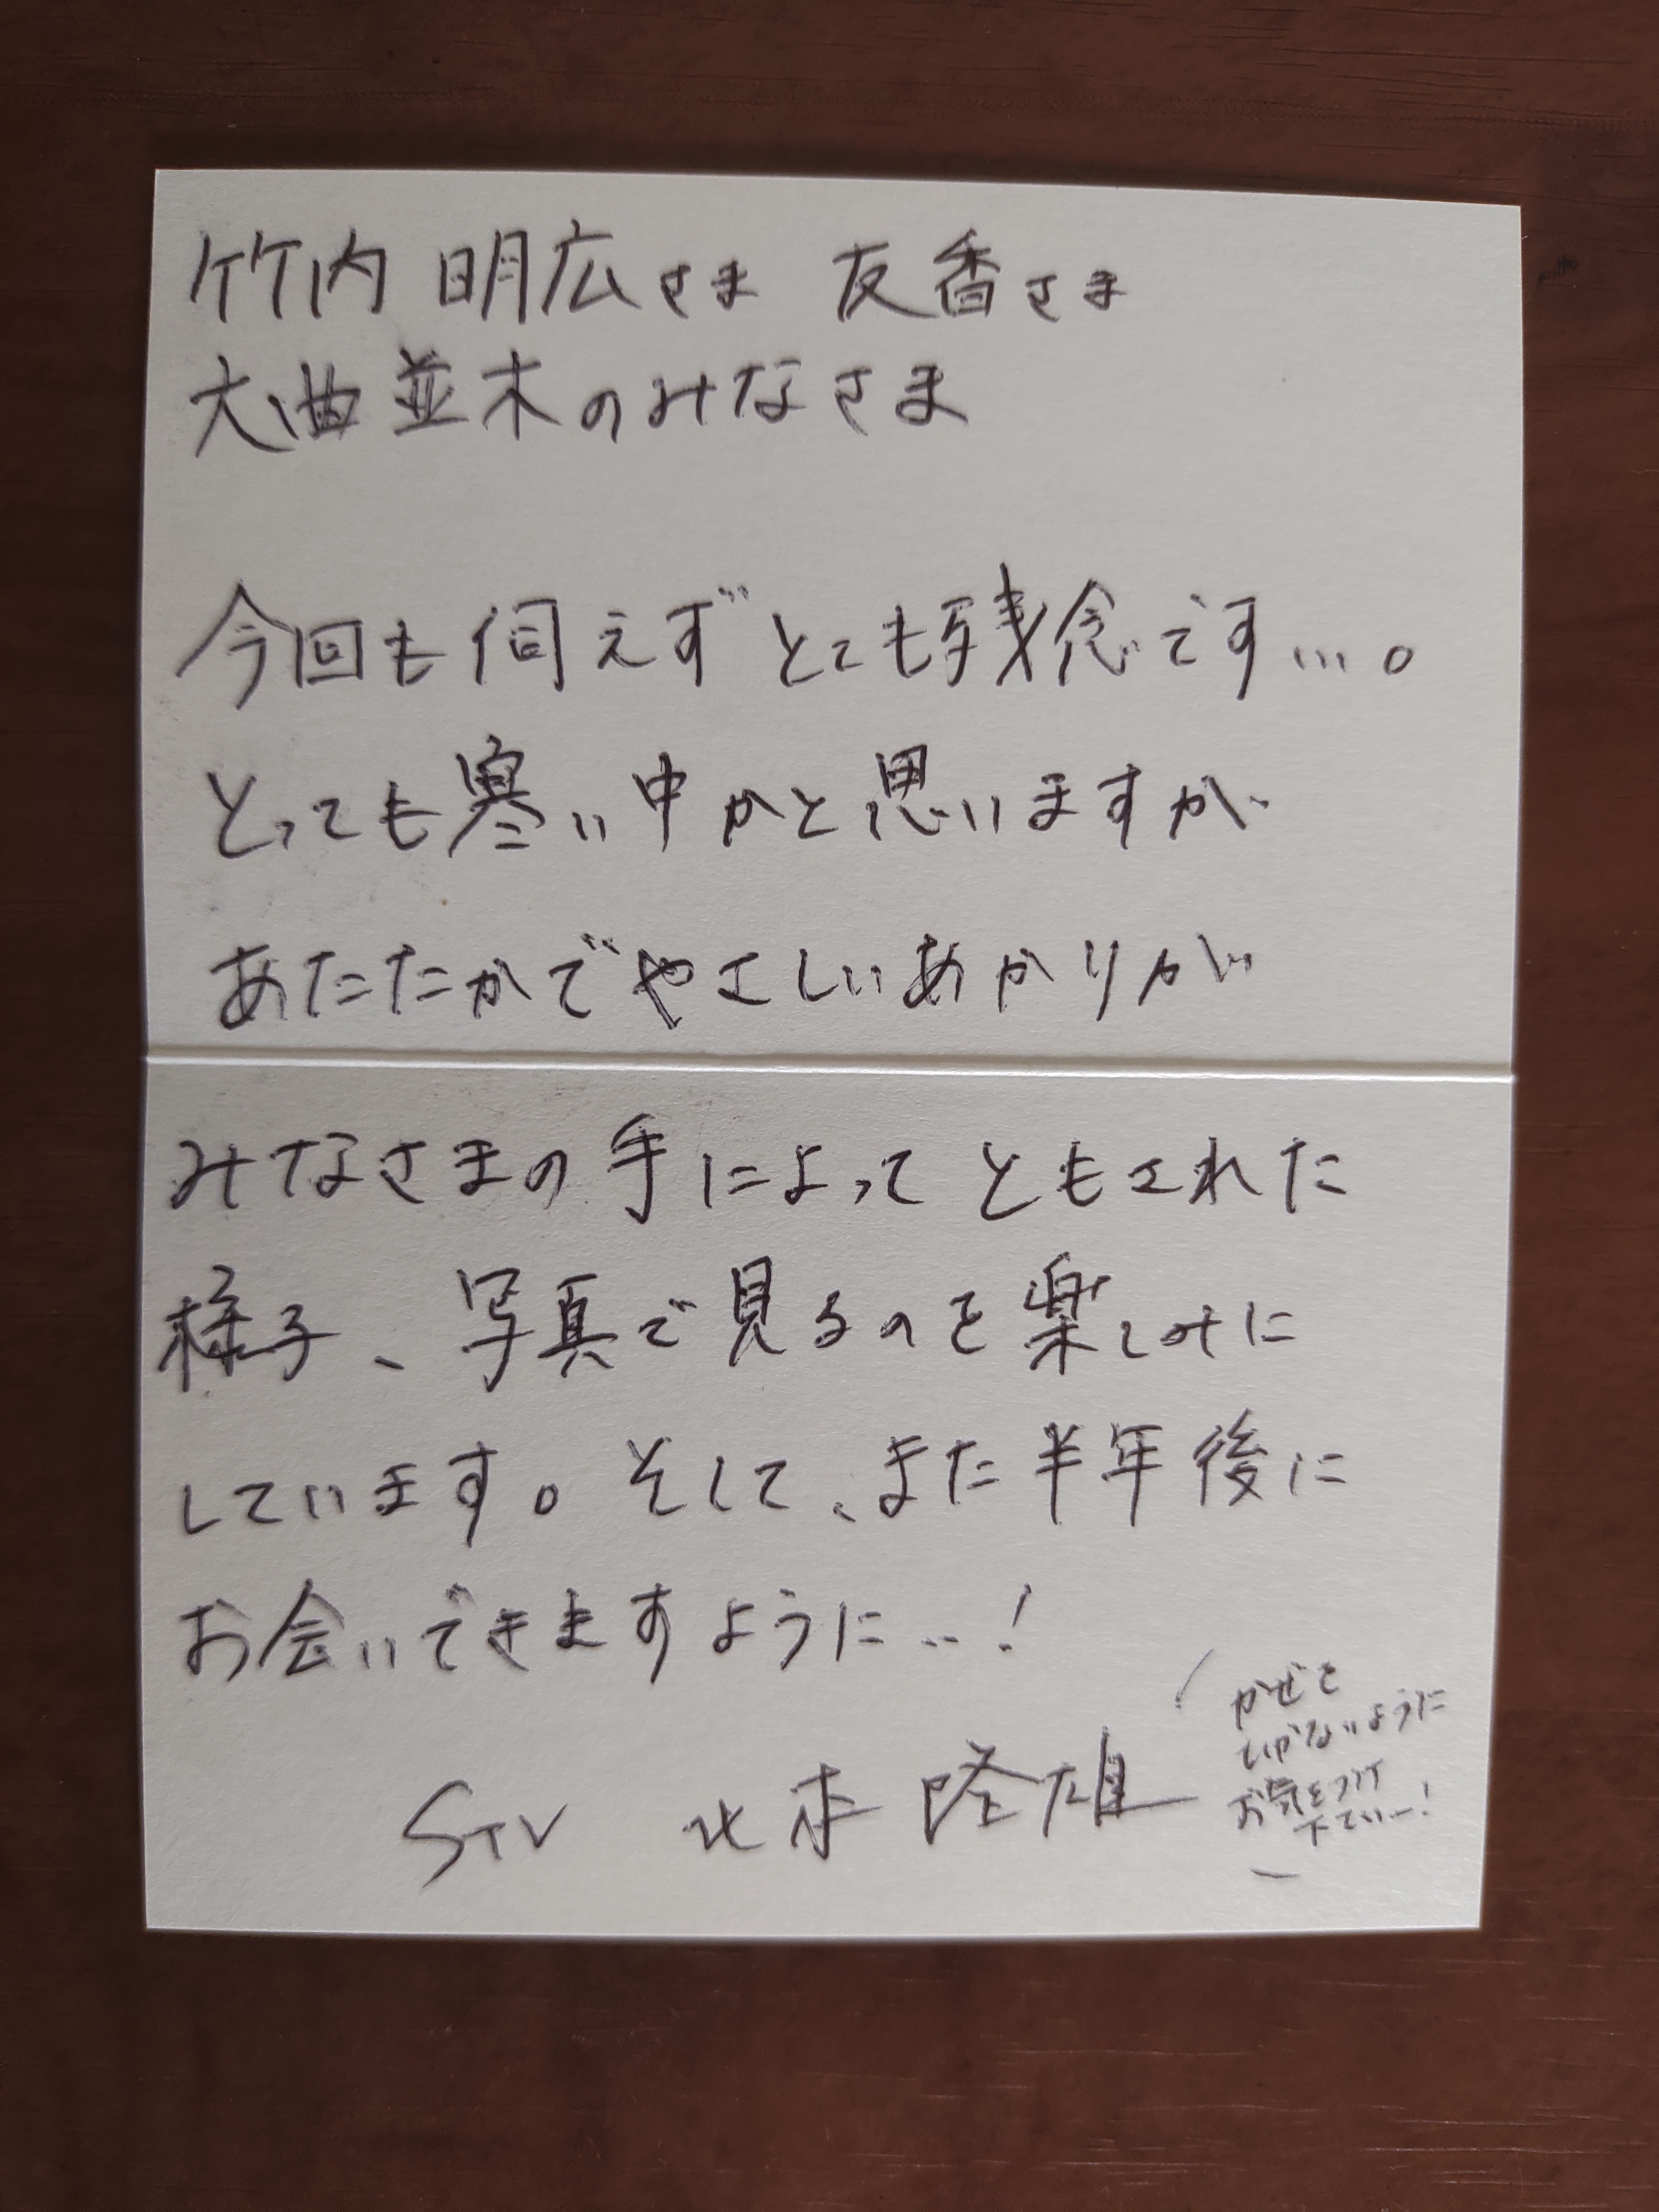 竹内 明広さま 友香さま
大曲並木のみなさま
今回も伺えずとても残念です…。
とっても寒い中かと思いますが
あたたかでやさしいあかりが
みなさまの手によって ともされた
様子、写真で見るのを楽しみに
しています。そして、また半年後に
お会いできますように…!
STV 北本 隆雄
かぜを
ひかないように
お気をつけ
下さいー!